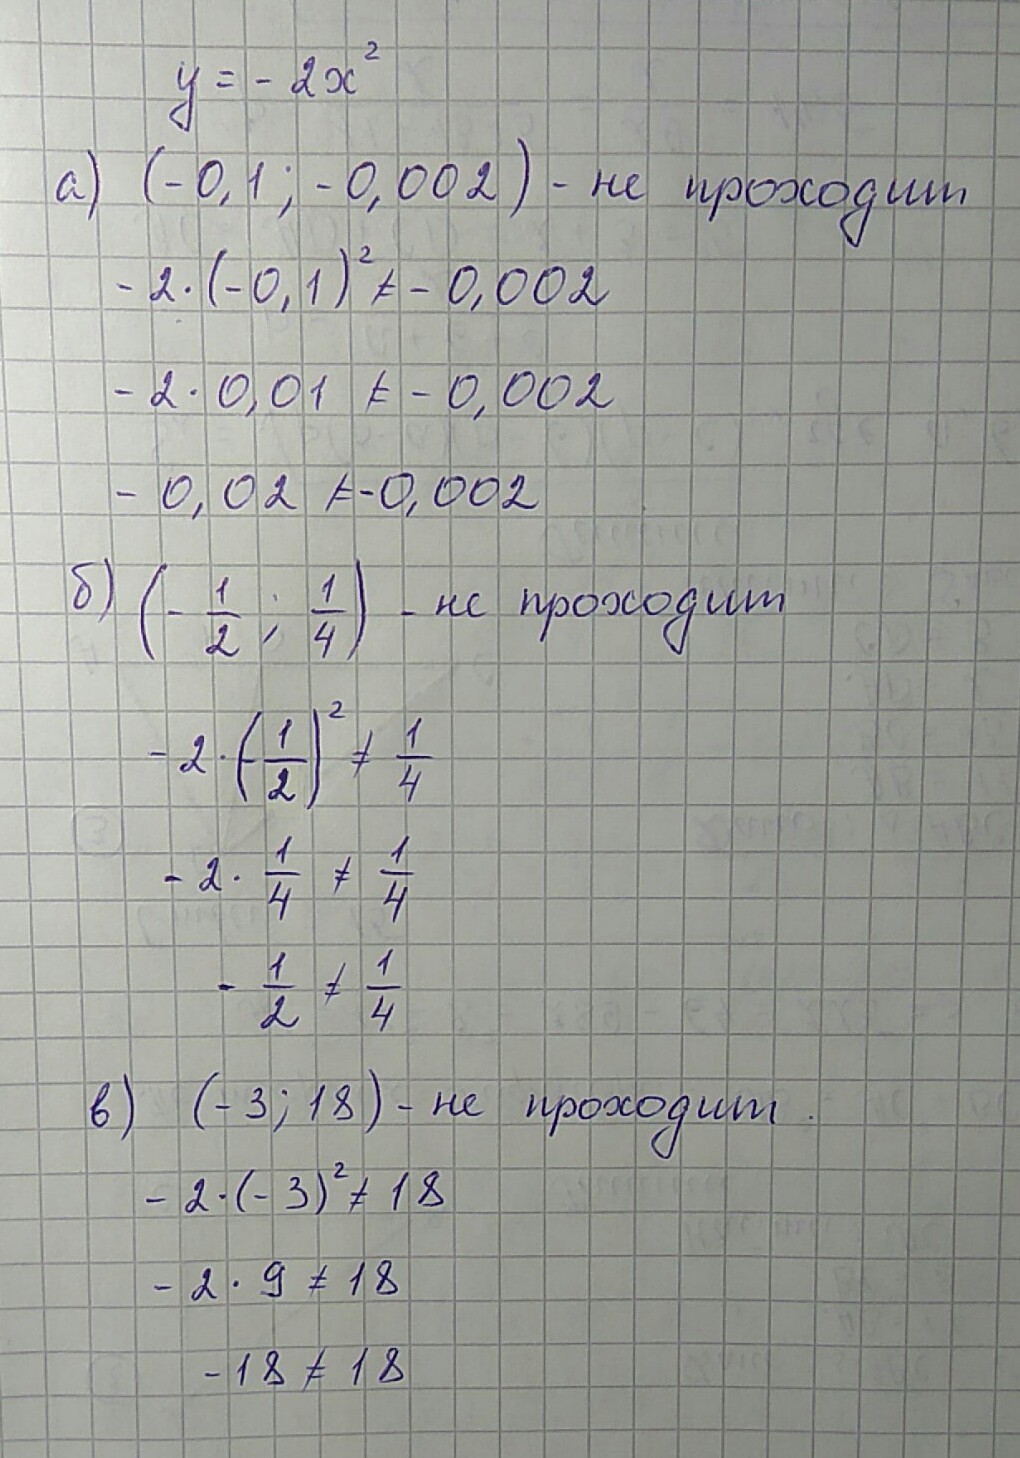 y = - 2x²
а) (-0,1; -0,002) - не проходит
- 2·(-0,1)² ≠ - 0,002
- 2·0,01 ≠ - 0,002
- 0,02 ≠ -0,002
б) (-1/2; 1/4) - не проходит
- 2·(-1/2)² ≠ 1/4
- 2·1/4 ≠ 1/4
- 1/2 ≠ 1/4
в) (-3; 18) - не проходит.
- 2·(-3)² ≠ 18
- 2·9 ≠ 18
-18 ≠ 18